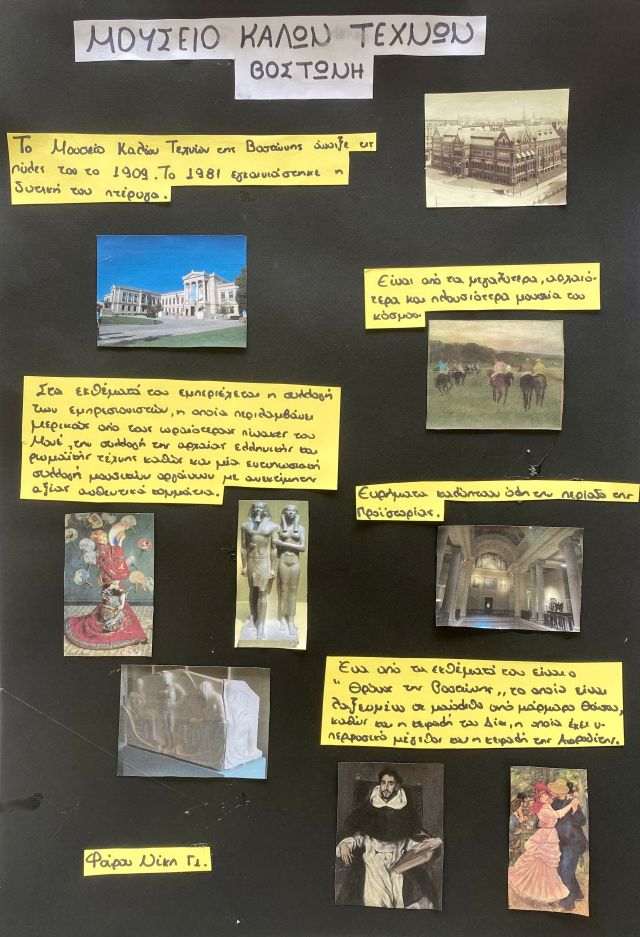 ΜΟΥΣΕΙΟ ΚΑΛΩΝ ΤΕΧΝΩΝ
ΒΟΣΤΩΝΗ
Το Μουσείο Καλών Τεχνών της Βοστώνης άνοιξε τις
πύλες του το 1909. Το 1981 εγκαινιάστηκε η
δυτική του πτέρυγα.
Είναι από τα μεγαλύτερα, παλαιό-
τερα και πλουσιότερα μουσεία του
κόσμου.
Στα εκθέματά του εμπεριέχεται η συλλογή
των εμπρεσιονιστών, η οποία περιλαμβάνει
μερικούς από τους ωραιότερους πίνακες του
Μονέ, την συλλογή της αρχαίας ελληνικής και
ρωμαϊκής τέχνης καθώς και μία εντυπωσιακή
συλλογή μουσικών οργάνων με ανεκτίμητης
αξίας αυθεντικά κομμάτια.
Ευρήματα καλύπτουν όλη την περίοδο της
Προϊστορίας.
Ένα από τα εκθέματά του είναι ο
"Θρόνος της Βοστώνης,, το οποίο είναι
λαξευμένο σε από μάρμαρο Θάσου,
καθώς και η κεφαλή του Δία, η οποία έχει υ-
περφυσικό μέγεθος και η κεφαλή της Αφροδίτης.
Φάρου Νίκη Γ2.